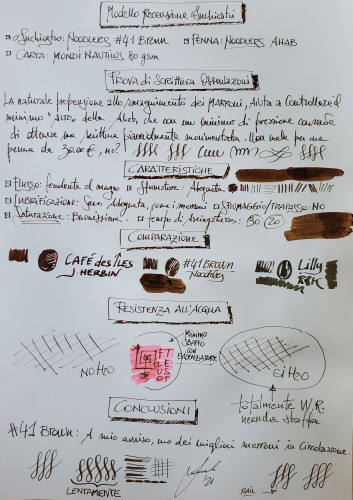 Modello Recensione Inchiostri
Inchiostro: NOODLERS #41 BROWN PENNA: NOODLERS AHAB
CARTA: MONDI NAUTILUS 80 gsm
PROVA di SCRITTURA
LA naturale propensione allo smagrimento dei MARRONI, AIUTA A CONTROLLARE il
minimo "AUTO" della Ahab, che con un minimo di pressione concede
di ottenere una scrittura piacevolmente movimentata. Non male per una
penna da 30.00 €, no?
CARATTERISTICHE
FLUSSO: tendente al magro Sfumature: Adeguate
LUBRIFICAZIONE: Adeguata, come i marroni SPIUMAGGIO/TRAPASSO: NO
SATURAZIONE: Buonissima tempo di Asciugatura: 30 (20)
COMPARAZIONE
CAFÉ des ÎLES
J. HERBIN
#41 BROWN
Noodlers
Lilly
RESISTENZA ALL'ACQUA
NO H2O
MINIMO
SBAFFO
CON
EVIDENZIATORE
Si H2O
totalmente W.R.
neanche sbaffa
CONCLUSIONI
#41 BROWN: A mio avviso, uno dei migliori marroni in circolazione.
LENTAMENTE
'21
RAIL